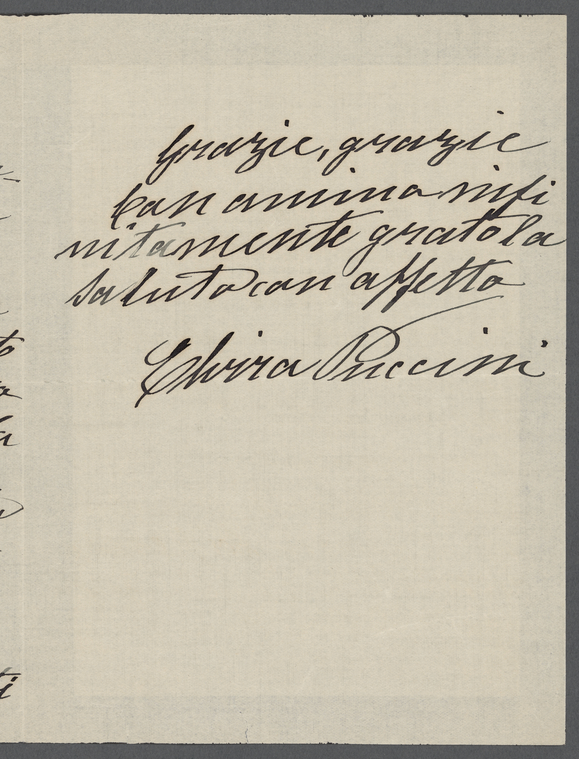 Grazie, grazie
Con anima infi
nitamente grato la
saluto con affetto
Elvira Puccini
to
la
ti